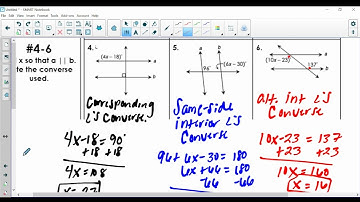 Untitled - SMART Notebook
#4-6
x so that a || b.
te the converse
used.
4.
(4x - 18)°
a
b
Corresponding
∠'s Converse.
4x-18=90°
+18 +18
4x=108
x=27
5.
a
b
96°
(6x - 30)°
Same-side
interior ∠'s
Converse
96+6x-30=180
6x+66=180
-66 -66
6.
(10x - 23)°
137°
a
b
alt. int ∠'s
Converse
10x-23=137
+23 +23
10x=160
x=16